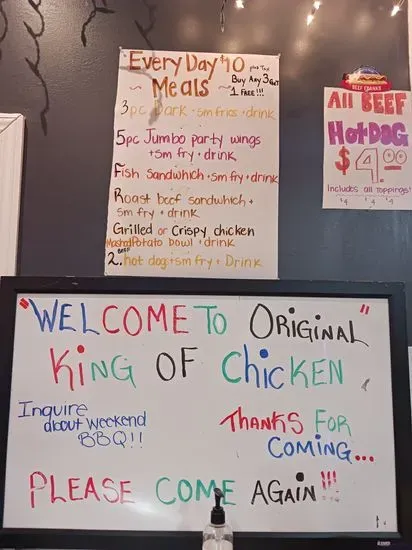 EveryDay $10 plus Tax
Meals
Buy Any 3 Get
1 FREE!!!
3pc Dark + sm fries + drink
5pc Jumbo party wings
+ sm fry + drink
Fish Sandwhich + sm fry + drink
Roast beef sandwhich +
sm fry + drink
Grilled or Crispy chicken
Mashed Potato bowl + drink
2. BEEF hot dog + sm fry + Drink
BEEF FRANKS
All BEEF
HotDOG
$4.00
Includes all toppings!
"WELCOME TO ORiginal"
King OF Chicken
Inquire
about weekend
BBQ!!
THANKS FOR
COMING...
PLEASE COME AGAIN!!!